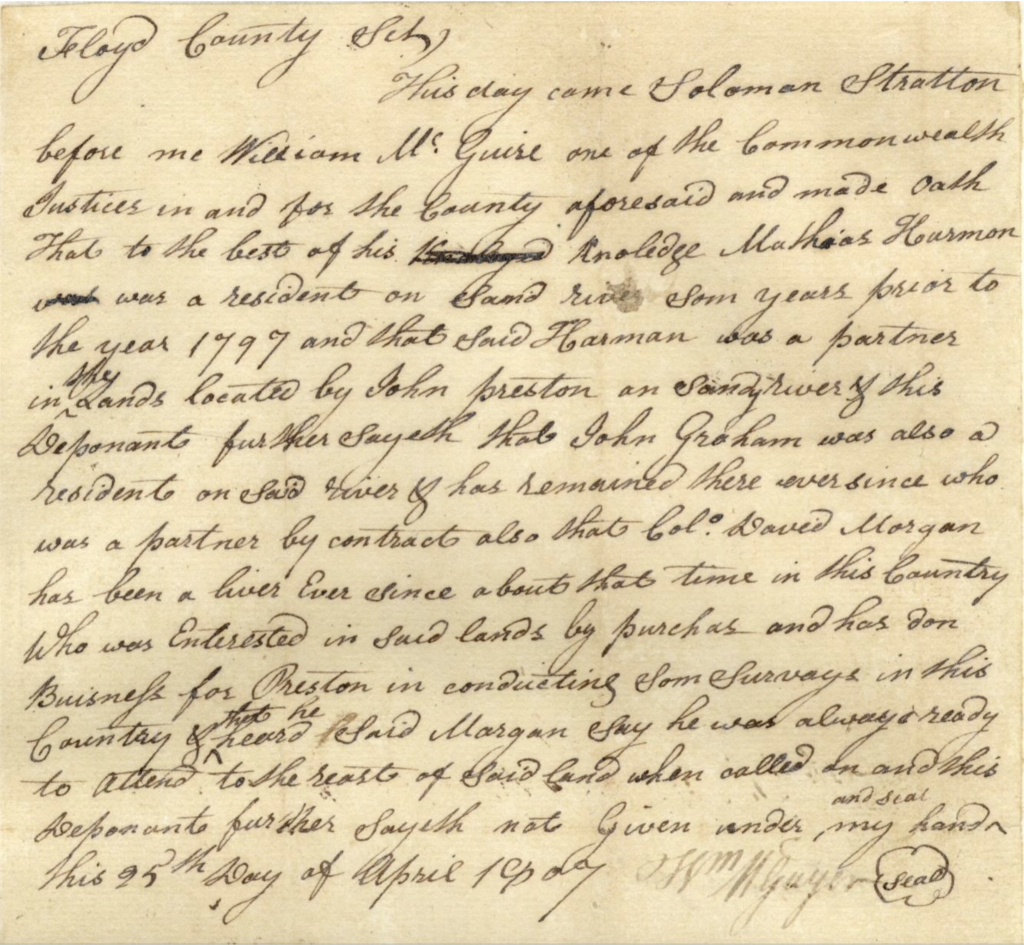 Floyd County Sct,
This day came Soloman Stratton
before me William Mc. Guire one of the Commonwealth
Justices in and for the County aforesaid and made Oath
That to the best of his Knoledge Mathias Harmon
was a resident on Sand river som years prior to
the year 1797 and that said Harman was a partner
in the Lands located by John preston on Sandy river & this
Deponant further Sayeth that John Graham was also a
resident on Said river & has remained there ever since who
was a partner by contract also that Colo. David Morgan
has been a liver Ever since about that time in this Country
Who was Enterested in said lands by purchas and has don
Buisness for Preston in conducting Som Survays in this
Country & that he heard Said Morgan Say he was always ready
to Attend to the reast of said land when called on and this
Deponant further Sayeth not Given under my hand and seal
this 25th Day of April 1807 Wm McGuyer Seal